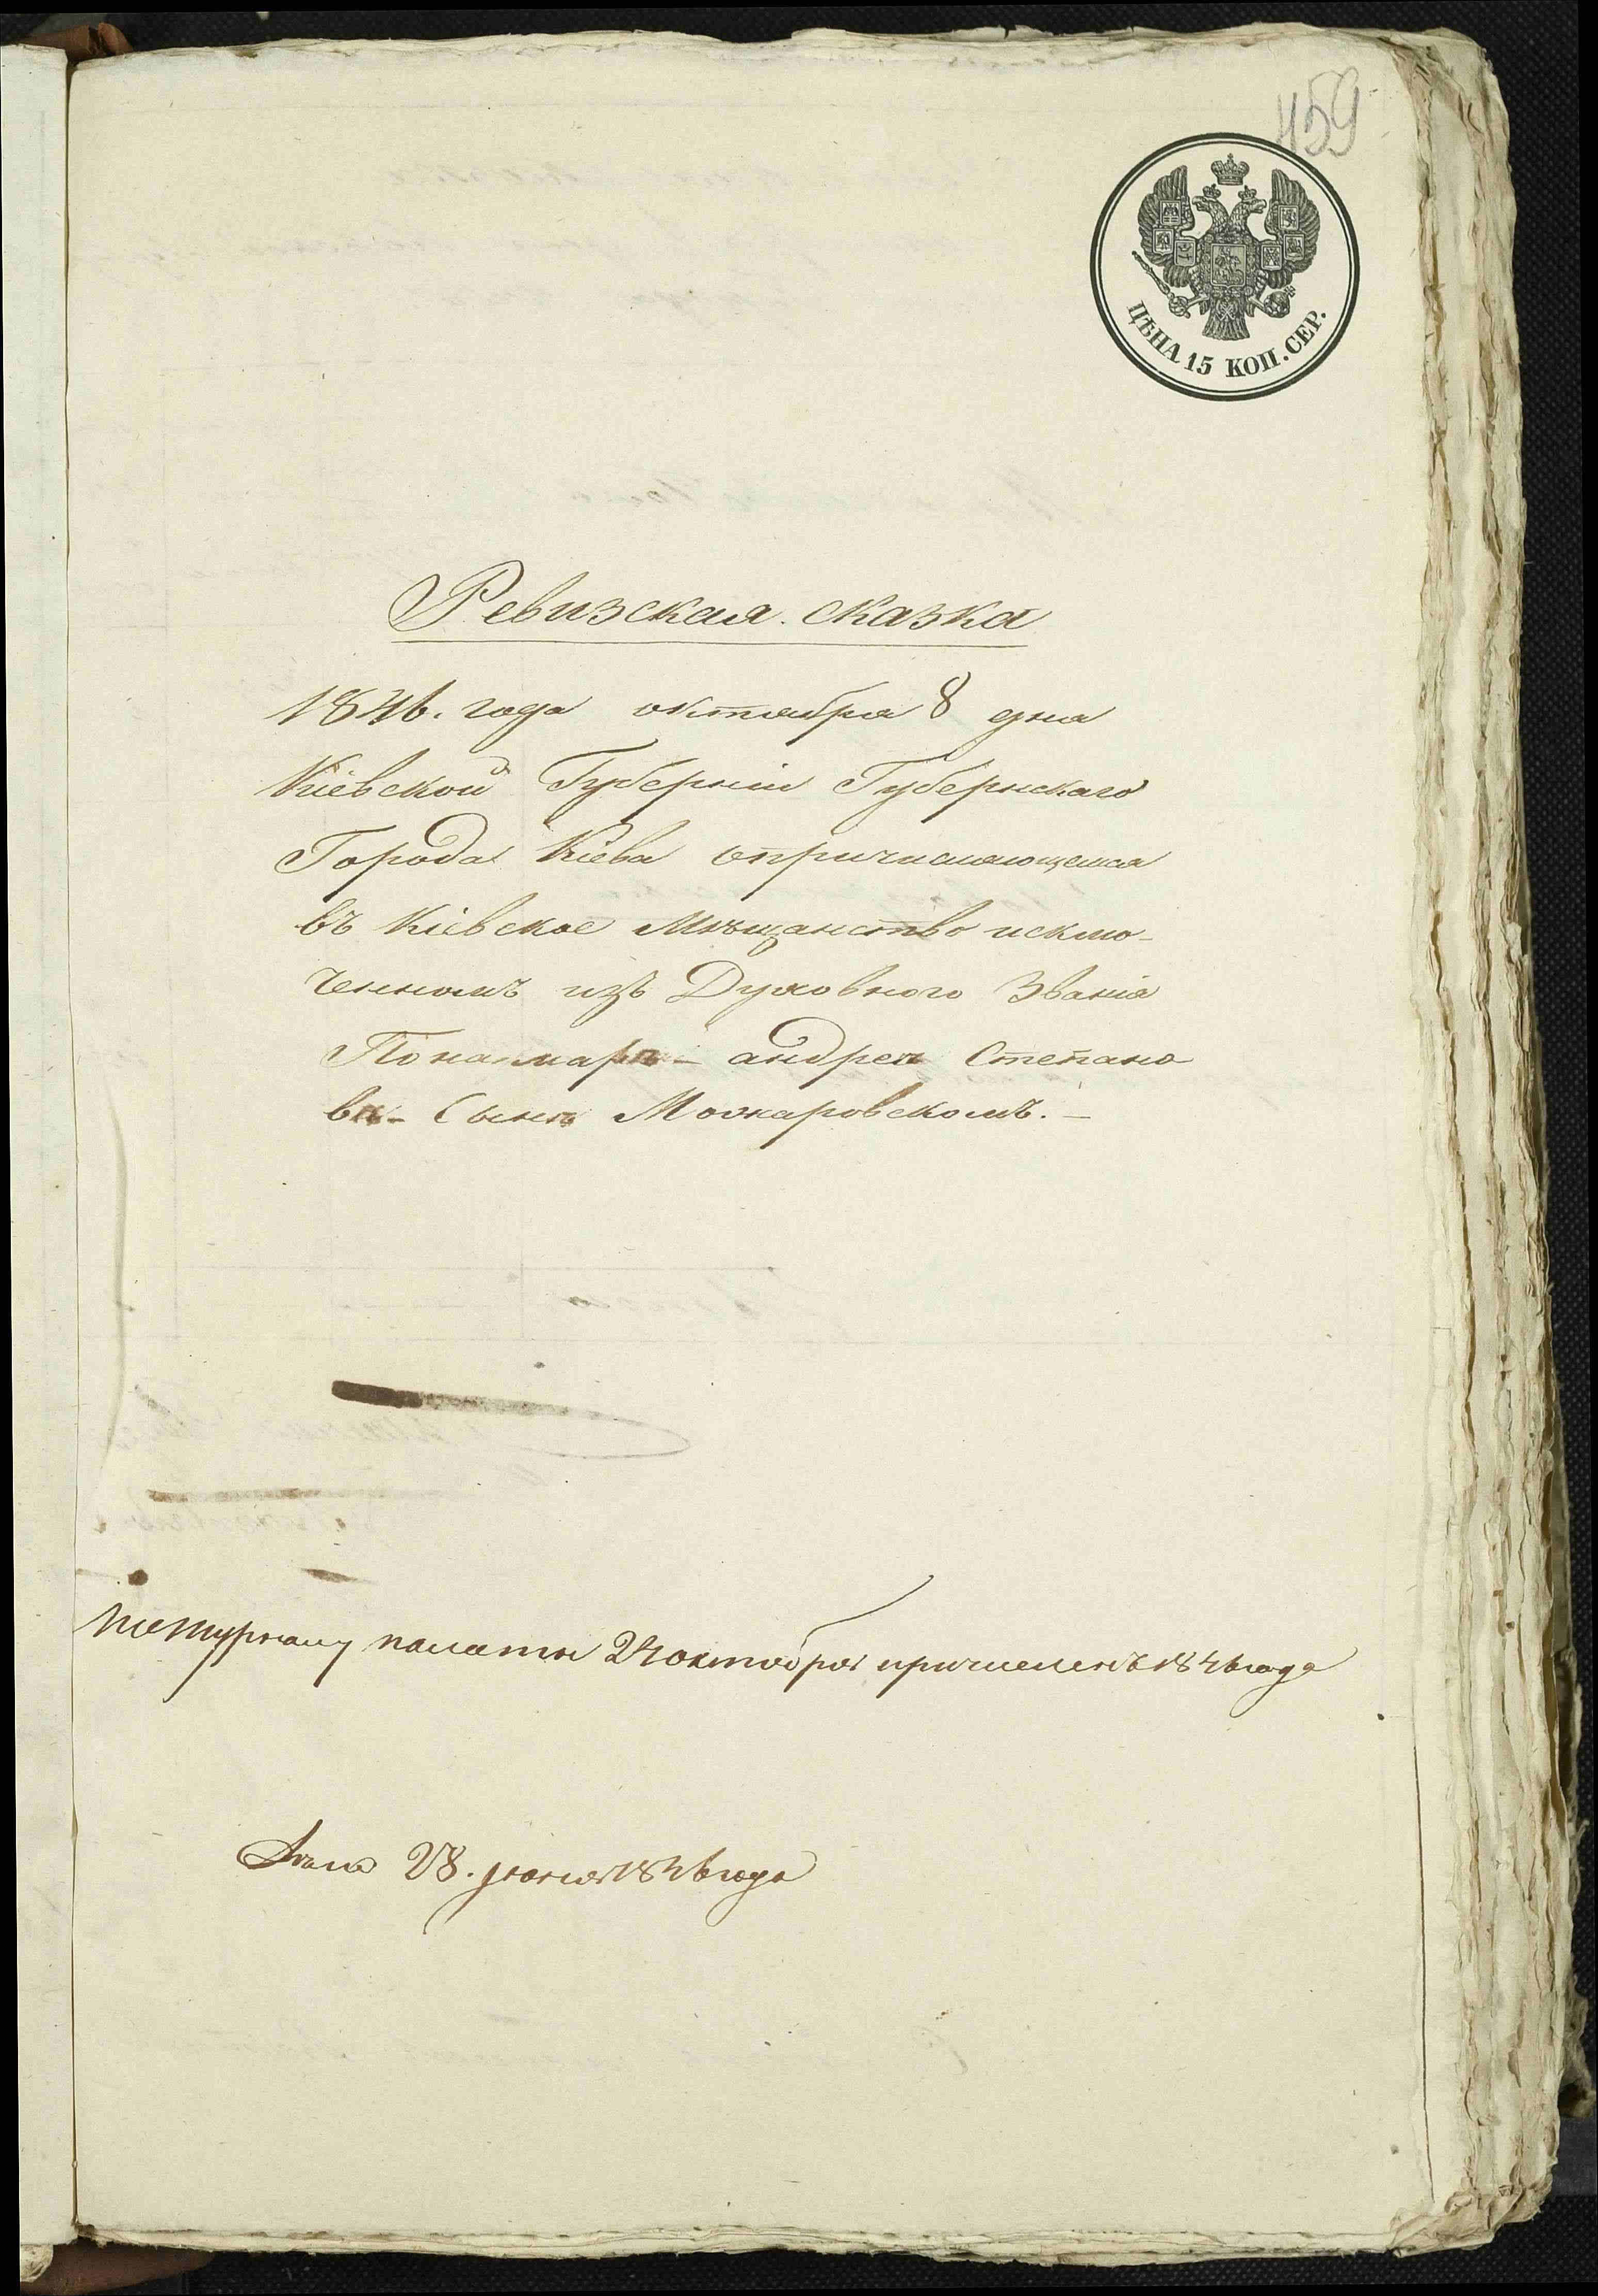 459
ЦѢНА 15 КОП. СЕР.
Ревизская сказка
1846. года октября 8 дня
Кіевской Губерніи Губернскаго
Города Кіева опричисляющемся
въ Кіевское Мѣщанство исклю-
ченномъ изъ Духовного Званія
Понамарѣ - андреѣ Степано
вѣ - Сынѣ Мокаровскомъ. -
палаты 24 октября причисленъ 1846 года
28. июня 1846 года